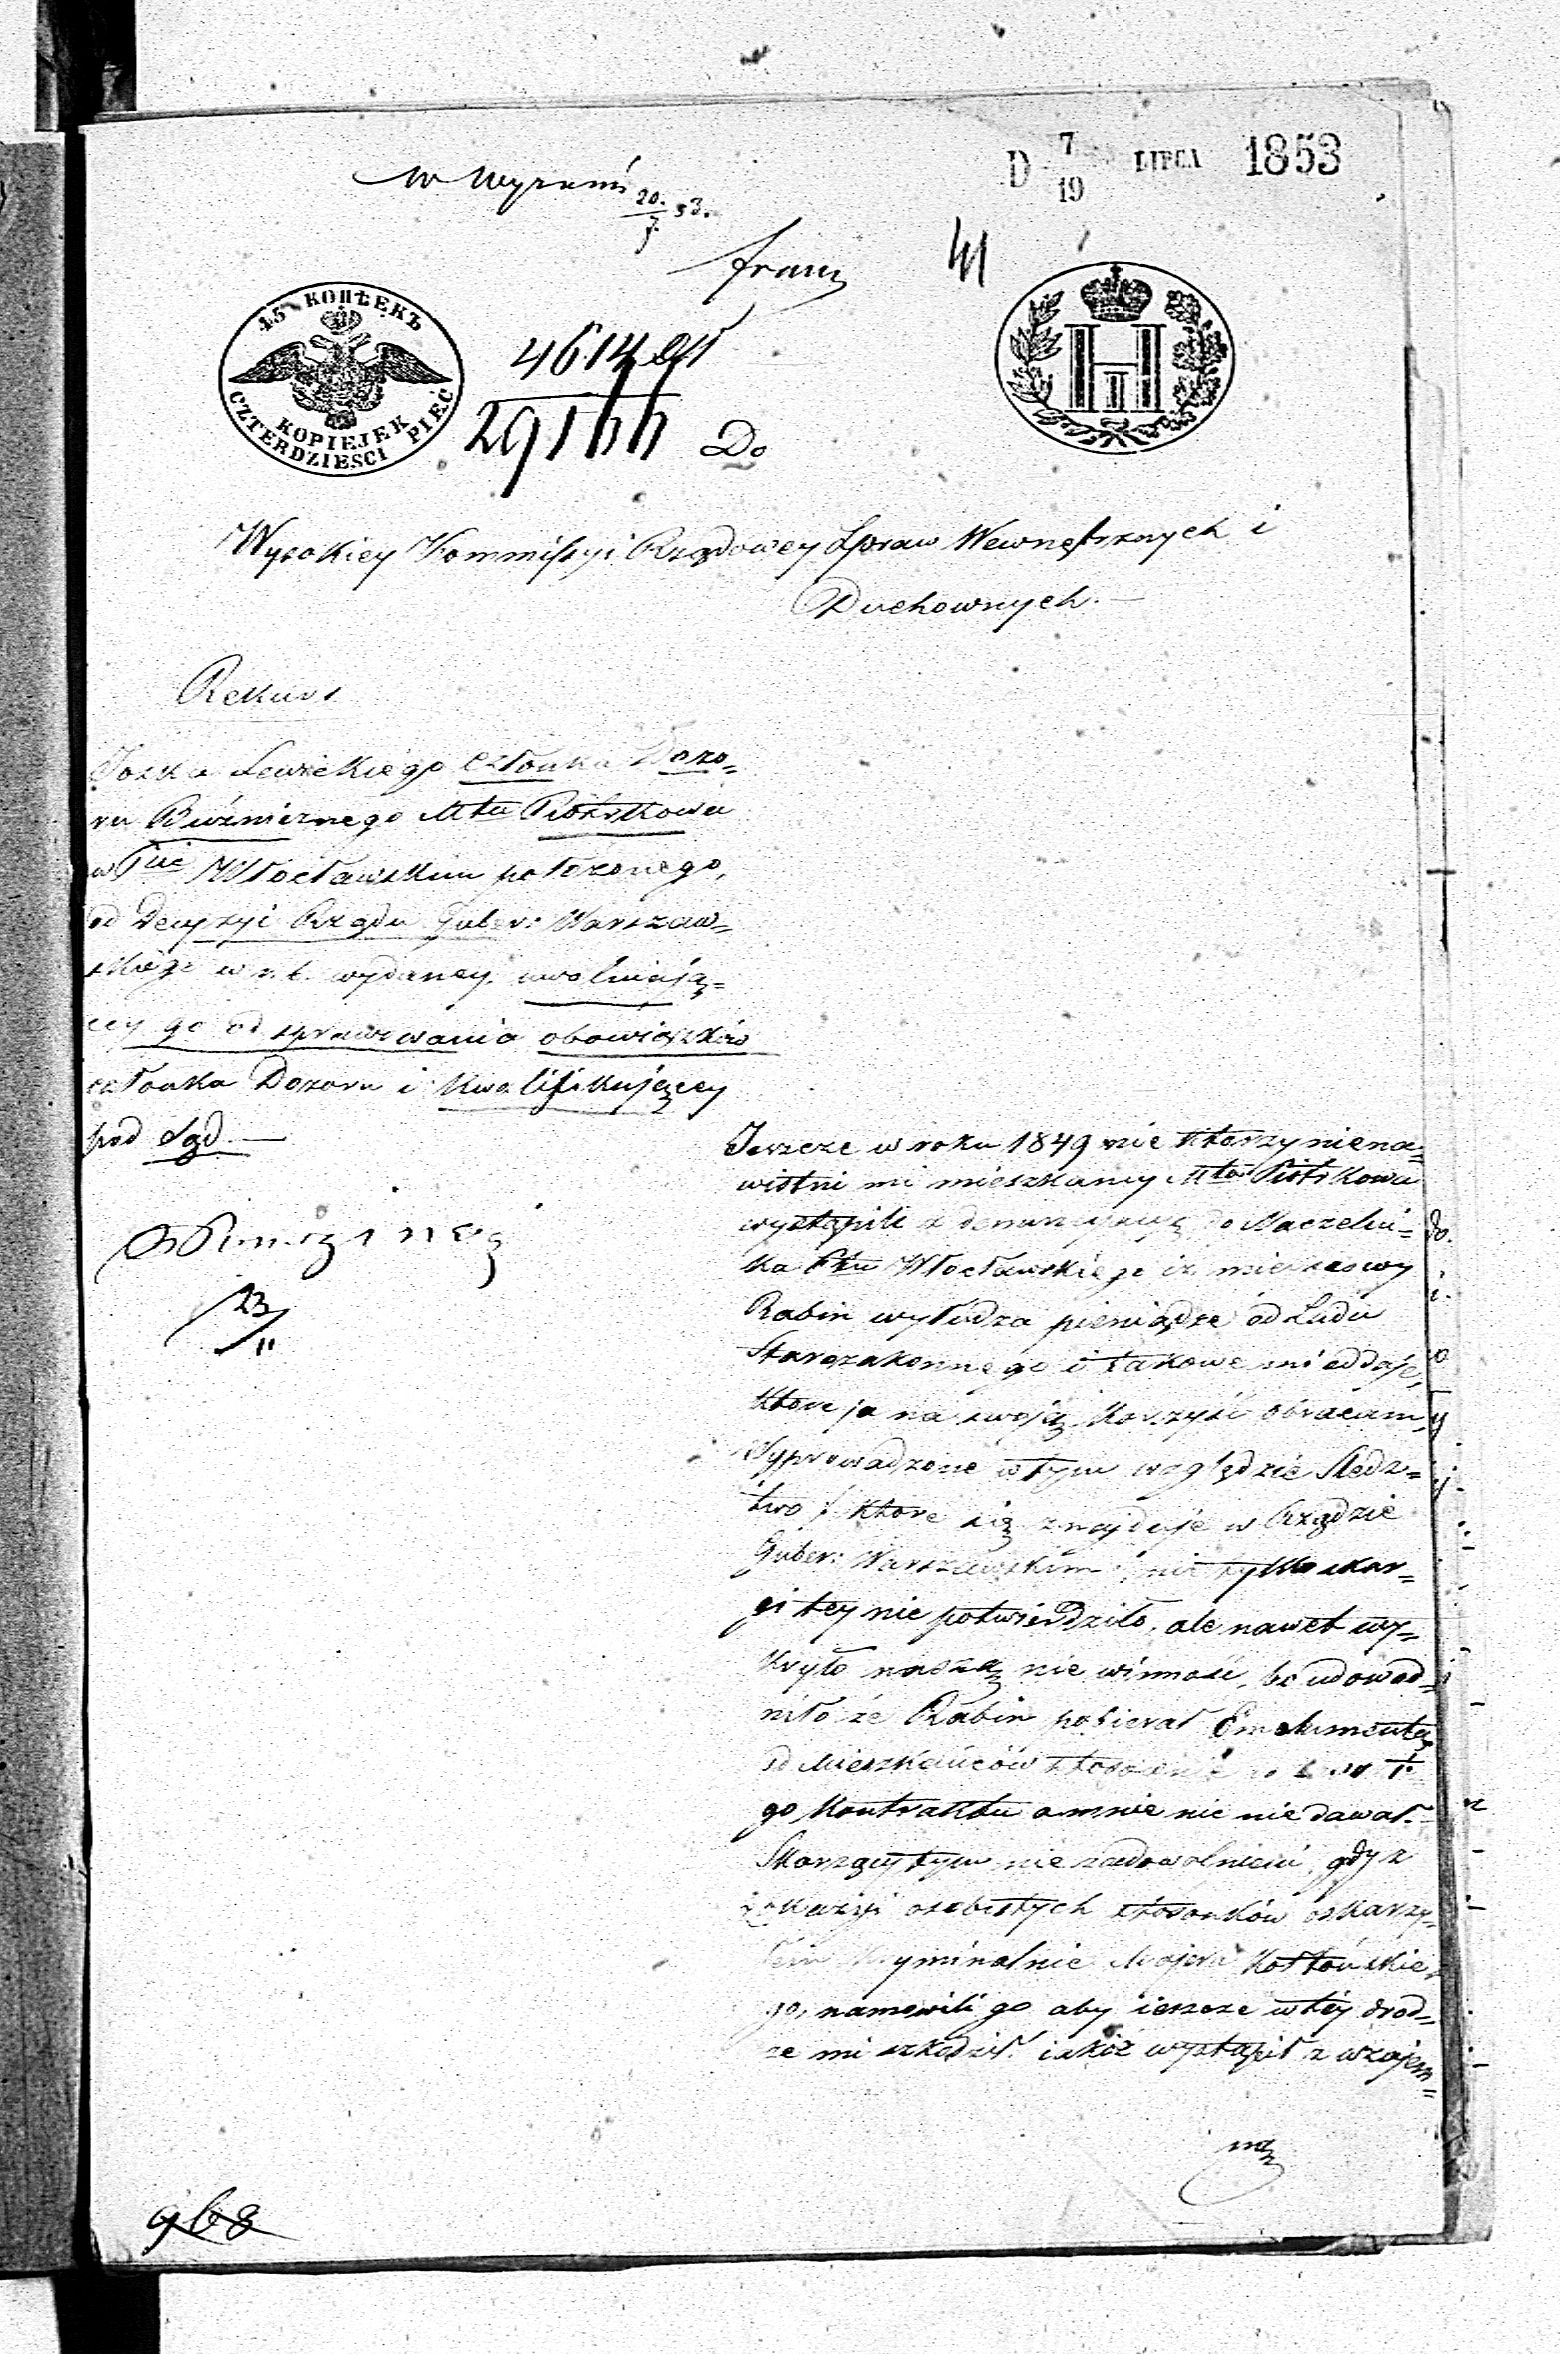 D 7/19 LIPCA 1853
w Wyznań
20./7. 53.
41
45 КОПѢЕКЪ
KOPIEJEK
CZTERDZIESCI PIĘĆ
4614
29166
Do
Wysokiey Kommissyi Rządowey Spraw Wewnętrznych i
Duchownych.—
Rekurs
Joska Lewickiego Członka Dozo=
ru Bużnicznego Mta Piotrkowa
w Pcie Włocławskim położonego,
od Decyzyi Rządu Guber: Warszaw=
skiego w r. b. wydaney, uwolniają=
cey go od sprawowania obowiązków
członka Dozoru i kwalifikującey
pod Sąd.—
23/11
Jeszcze w roku 1849 nie którzy niena=
wistni mi mieszkańcy Mta Piotrkowa
wystąpili z denuncyacyą do Naczelni=
ka Ptu Włocławskiego iż mieyscowy
Rabin wyłudza pieniądze od Ludu
Starozakonnego i takowe mi oddaje,
które ja na swoją korzyść obracam,
Wyprowadzone w tym względzie Śledz=
two / które się znajduje w Rządzie
Guber: Warszawskim / nie tylko skar=
gi tey nie potwierdziło, ale nawet wy=
kryło naszą nie winność, bo udowod=
niło że Rabin pobierał Emolumenta
od Mieszkańców stosownie do
go Kontraktu a mnie nic nie dawał.—
Skarzący tym nie zadowolnieni, gdy z
okazyi osobistych stosunków oskarzy=
łem kryminalnie Majera Kottowskie=
go, namówili go aby ieszcze w téy drod=
ze mi szkodził. iakóż wystąpił z wzajem=
ną
968